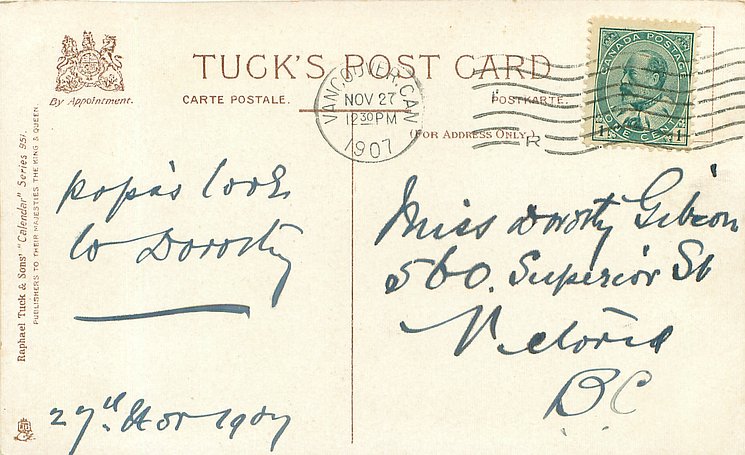 TUCK'S POST CARD
By Appointment.
CARTE POSTALE.
POSTKARTE.
(FOR ADDRESS ONLY.)
VANCOUVER. CAN
NOV 27
12 30 PM
1907
R
CANADA POSTAGE
1 ONE CENT 1
Raphael Tuck & Sons' "Calendar" Series 951.
PUBLISHERS TO THEIR MAJESTIES THE KING & QUEEN.
papa's love
to Dorothy
27th Nov 1907
Miss Dorothy Gibson
560. Superior St
Victoria
BC